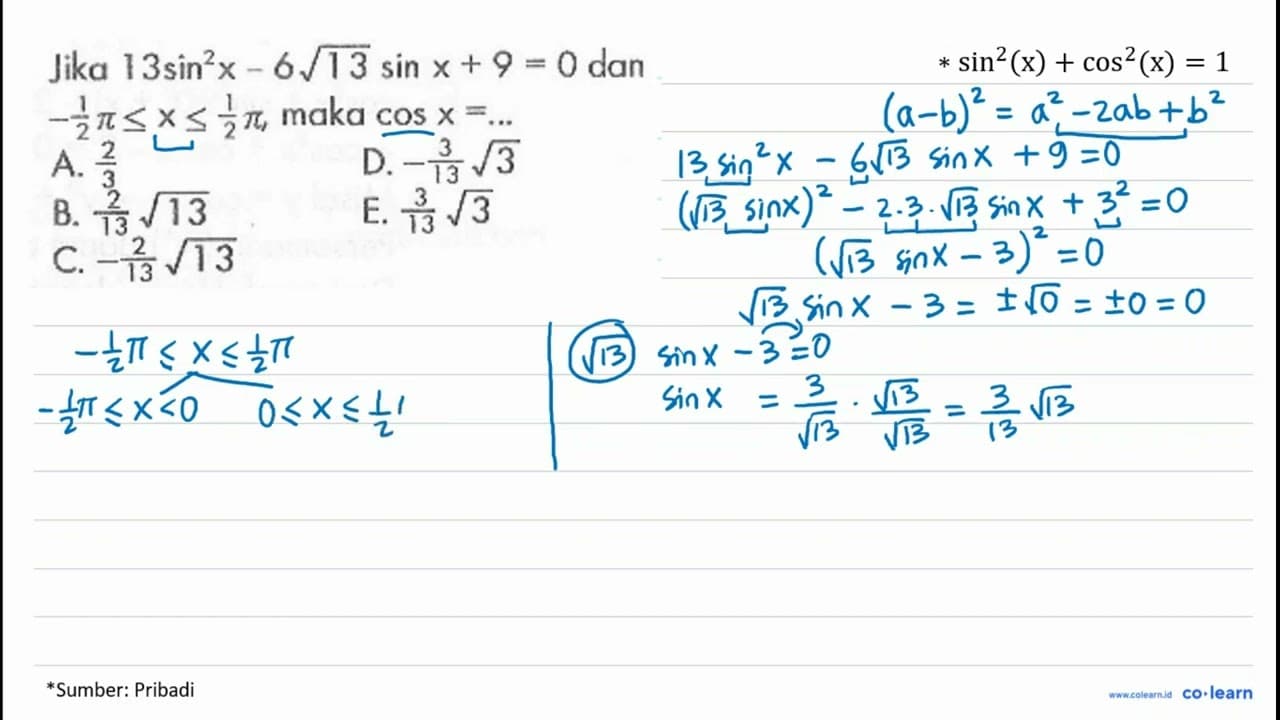 Jika 13sin²x – 6√13 sin x + 9 = 0 dan
-½π ≤ x ≤ ½π, maka cos x =...
A. 2/3
B. 2/13 √13
C. -2/13 √13
D. -3/13 √3
E. 3/13 √3
* sin²(x) + cos²(x) = 1
(a-b)² = a² - 2ab + b²
13 sin²x - 6√13 sin x + 9 = 0
(√13 sin x)² - 2.3.√13 sin x + 3² = 0
(√13 sin x - 3)² = 0
√13 sin x - 3 = ±√0 = ±0 = 0
√13 sin x - 3 = 0
sin x = 3/√13 . √13/√13 = 3/13 √13
-½π ≤ x ≤ ½π
-½π ≤ x < 0 0 ≤ x ≤ ½
*Sumber: Pribadi
www.colearn.id co·learn